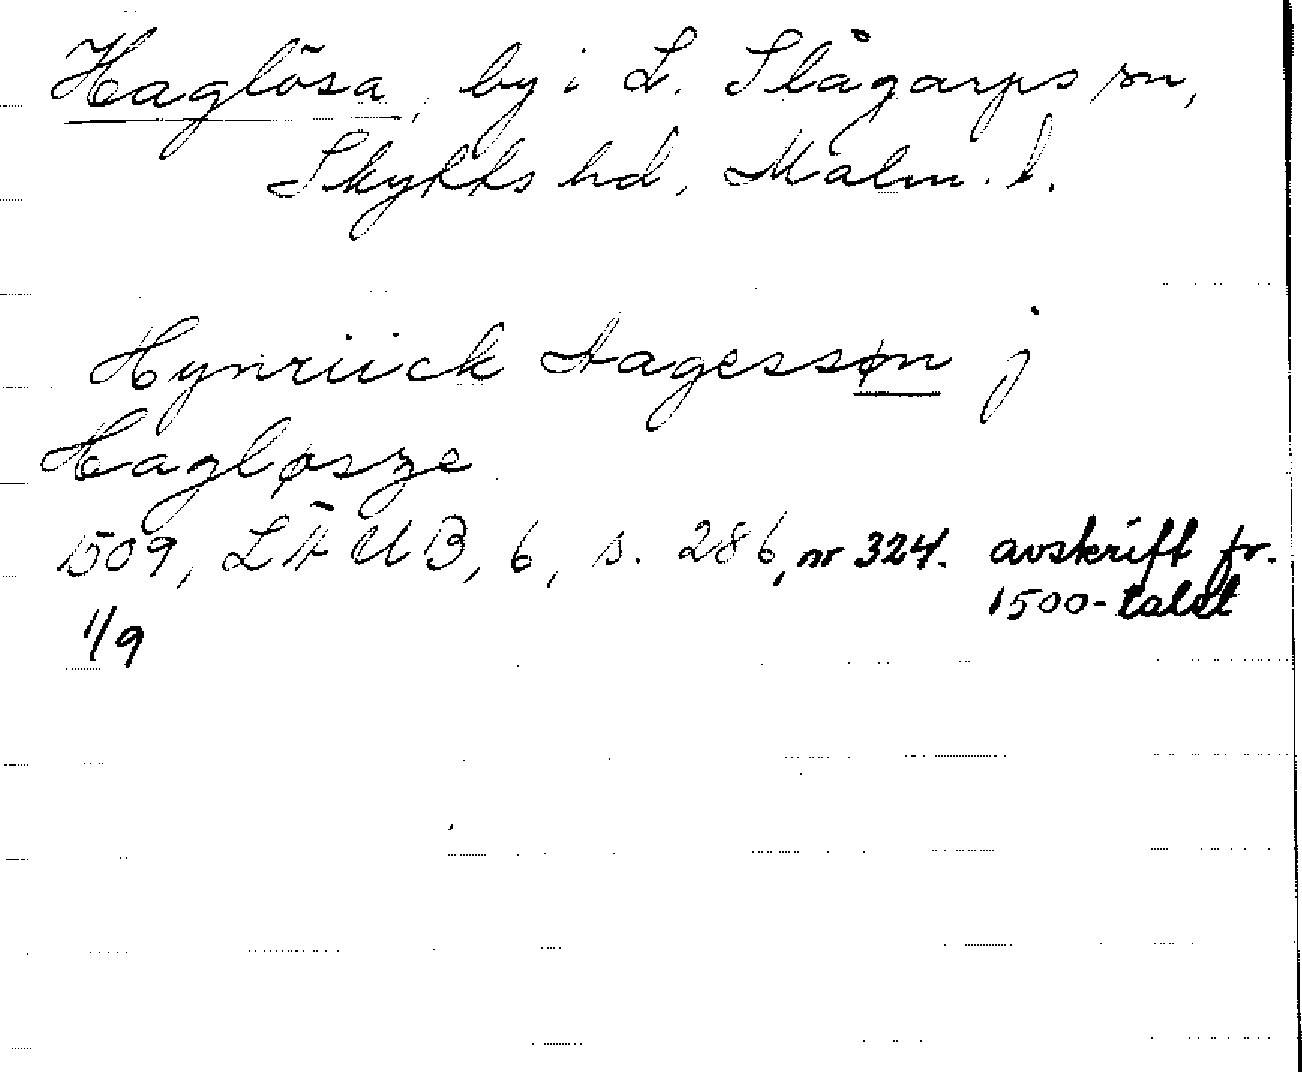 Haglösa, by i L. Slågarps sn,
Skytts hd, Malm. l.
Hynriick Aagessøn j
Hagløsze
1509, LÄUB, 6, s. 286, nr 324. avskrift fr.
1/9 1500-talet